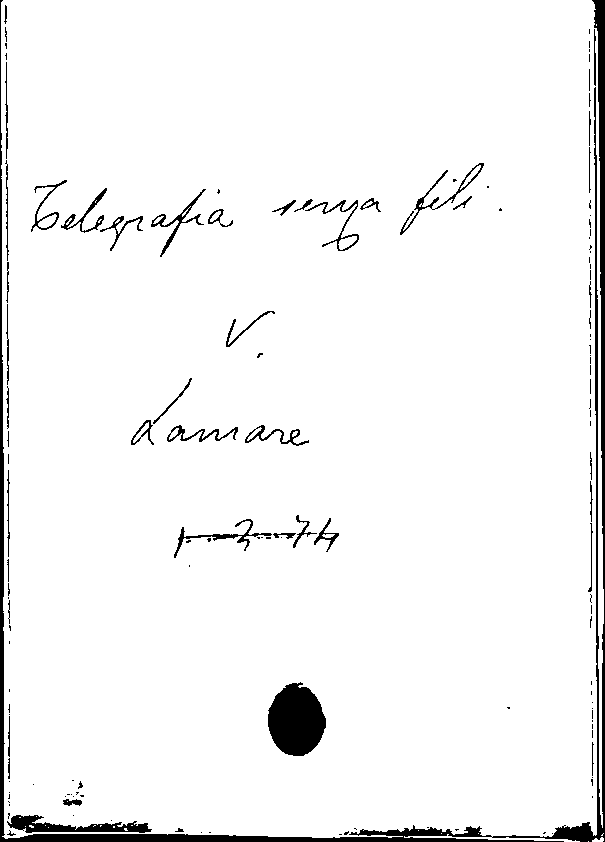 Telegrafia senza fili.
V.
Lamare
1-2-74